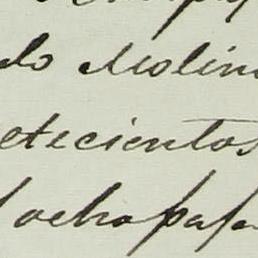 do Molin
etecientos
ocho pasa